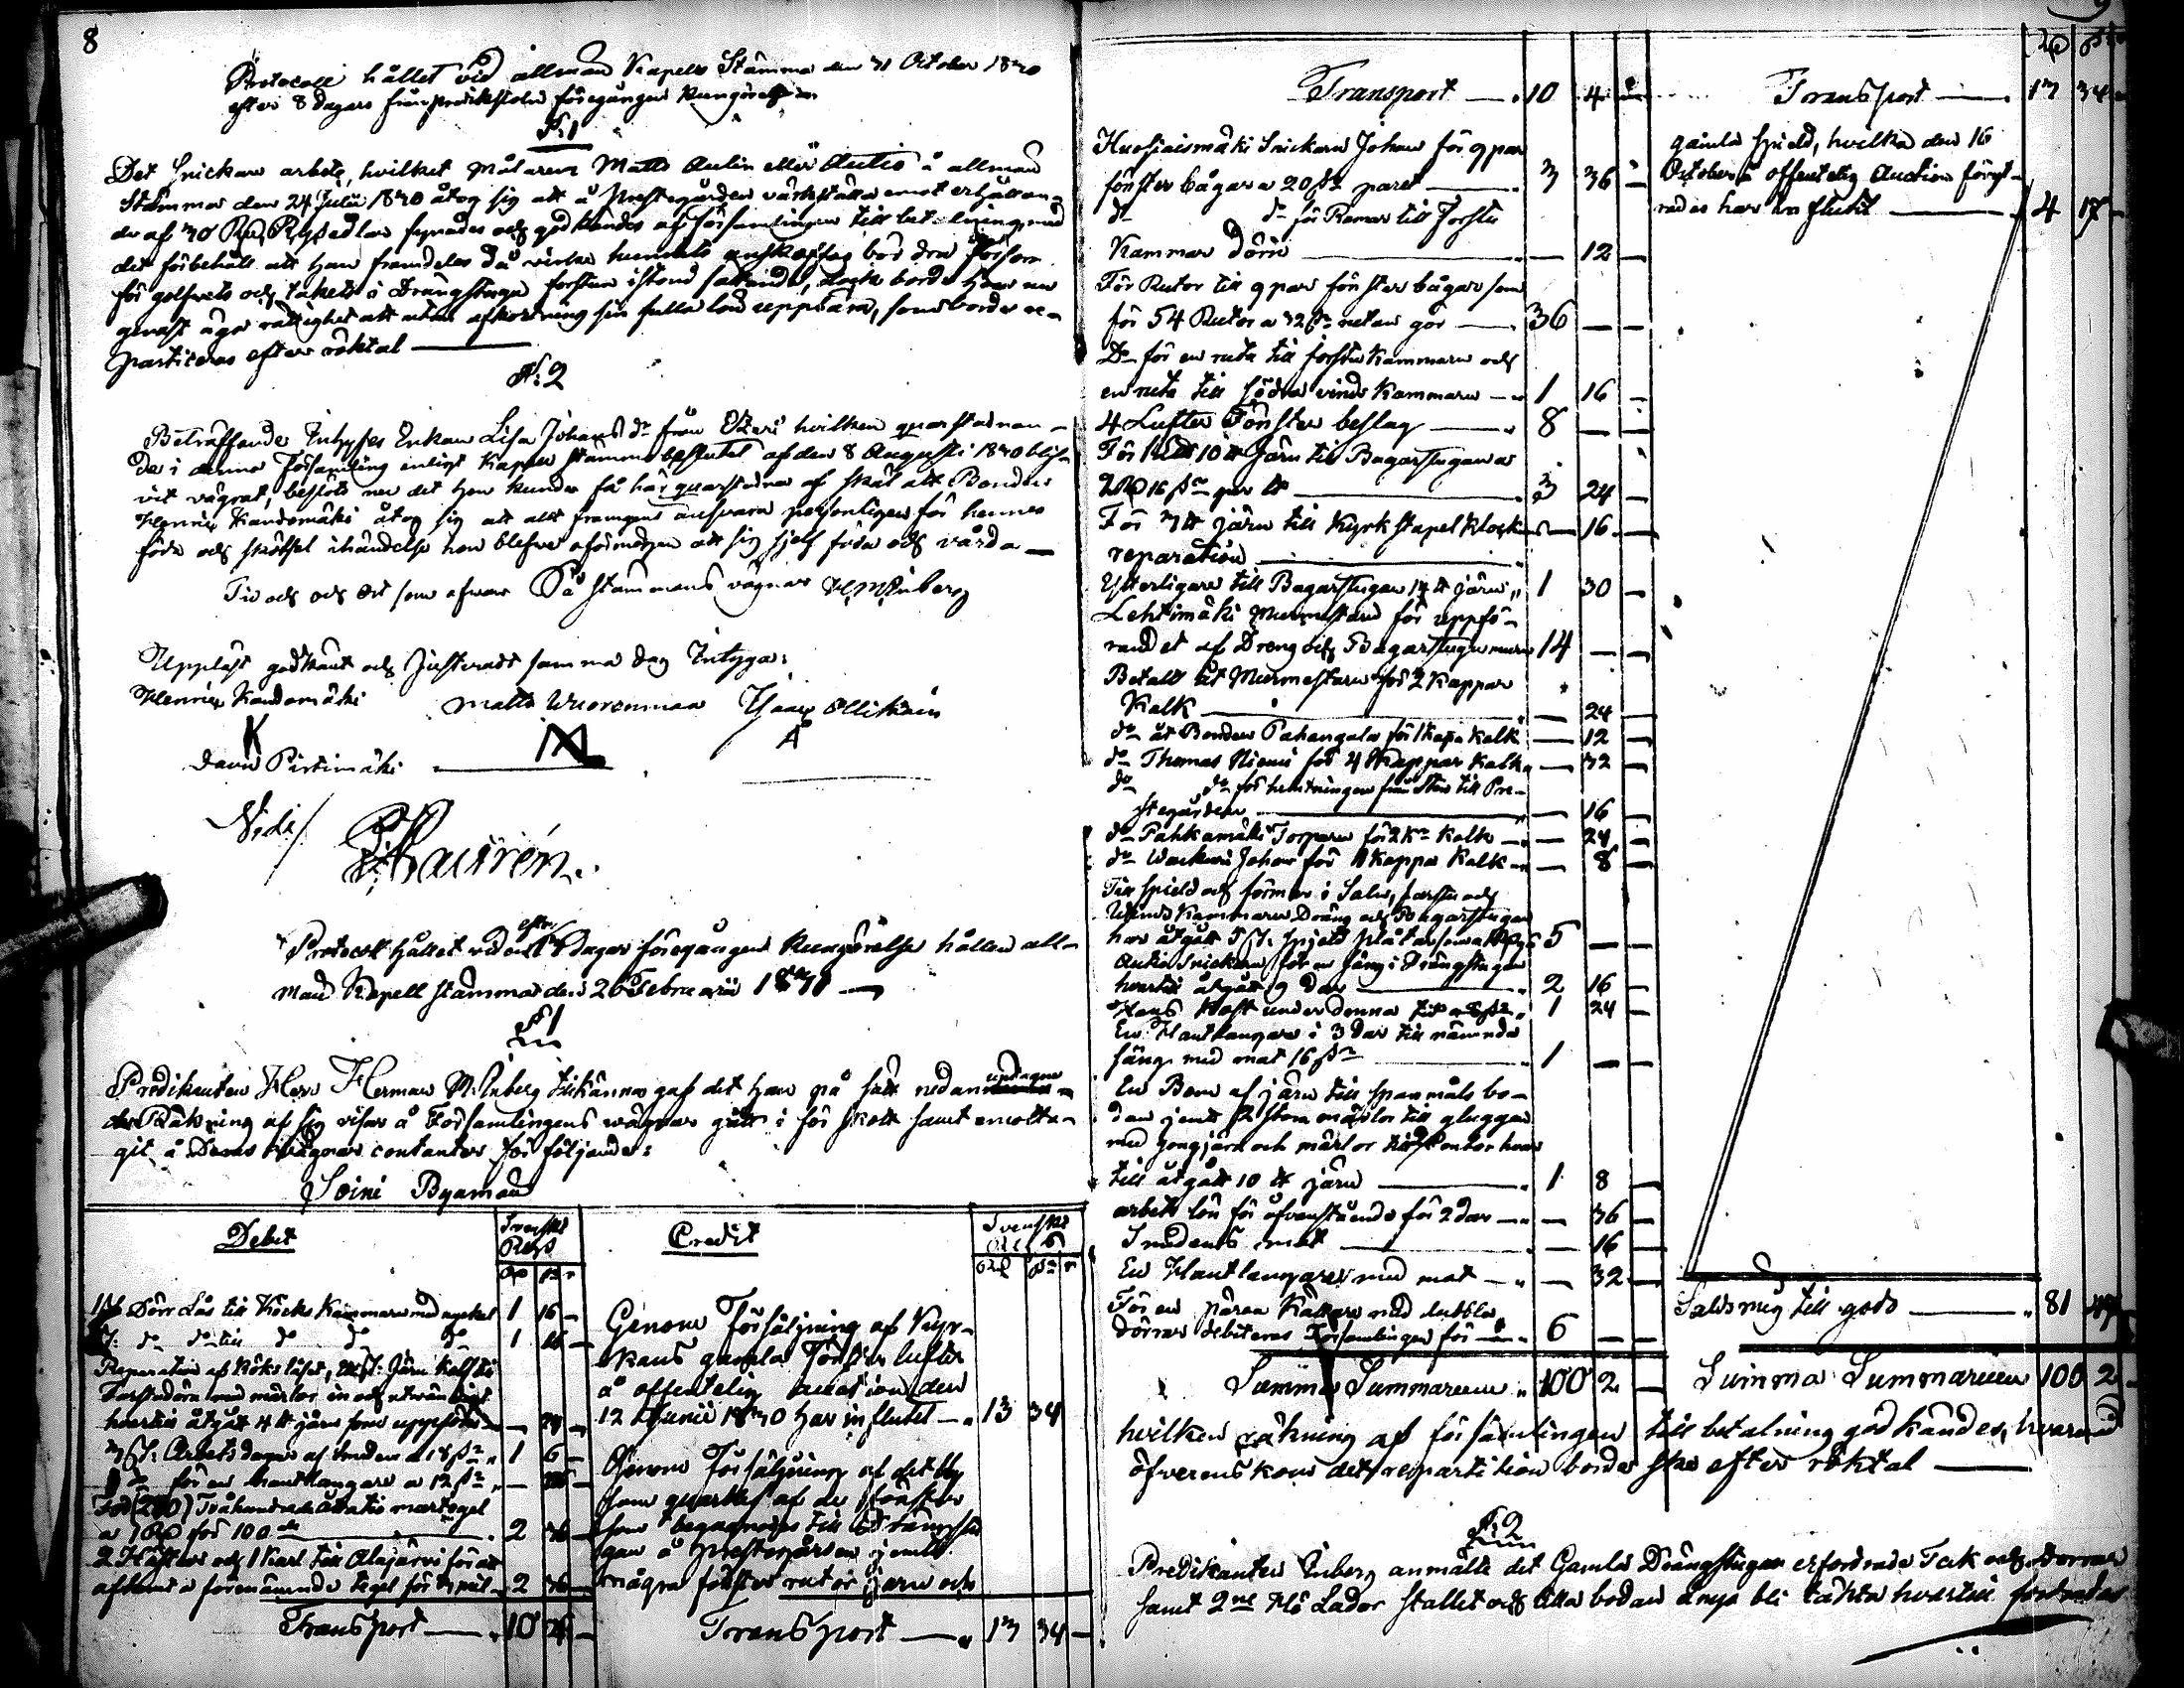 8
Protocoll hållet vid allmän Kapell Stämma den 31 October 1830
efter 8 dagars från predikstolen föregången kungörelse
N:1
Det Snickare arbete, hvilket Målaren Matts Aulin eller Autio å allmän
Stämma den 24 Julii 1830 åtog sig att å Prestegården värkställa emot erhållan-
de af 30 Rub. synades och godkändes af församlingen till betalning, med
det förbehåll att han framdeles då virke hunnits anskaffas bör dra försorg
för golfvets och takets i Drängstugu forstun istånd sättande, dock borde han nu
genast äga rättighet att utan afkortning sin fulla lön uppbära, som borde re-
parteras efter röktal
N:2
Beträffande Inhyses Enkan Lisa Johans dr från hvilken qvarstadnan-
de i denna Församling enligt Kapell stämmobeslutet af den 8 Augusti 1830 blif-
vit vägrat, beslöts nu det hon kunde få här qvarstadna af skäl att Bonden
Henric Kandomäki åtog sig att allt framgent ansvara personligen för hennes
föda och skötsel ihändelse hon blefve oförmögen att sig sjelf föda och vårda
Tid och ort som ofvan På Stämmans vägnar H. M. Inberg
Uppläst godkänt och Justeradt samma dag Intyga:
Henric Kandomäki Matts Wuorenmaa Isaac Ollikain
K
David Pirtimäki
Vidi/
Protocoll hållet vid efter 8 dagar föregången kungörelse hållen all-
män Kapell stämma den 26 Februarii 1831
§ 1
Predikanten Herr Herman M. Inberg tillkännagaf det han på sätt nedan upptagne
Räkning af sig visar å Församlingens vägnar gått i förskott samt emotta-
git å Deras vägnar contanter för följande:
Soini Byamän
Debet Svenske Rgs Credit Svenske
1 st. Dörr Lås till Köcks Kammaren med nyckel 1 16 –
1 st: do do till do do do 1 16 –
Reparation af Köks låset,
hvartill åtgått 4 ℔ järn som uppgifves – 24 –
3 st. Arbetsdagar af Smeden a 18 sk 1 6 –
för en hantlangare a 12 sk
För (200) Tvåhundrade murtegel
a 1 Rd för 100 de 2 36 –
2 Hästar och 1 karl till Alajärvi för att
afhämta förenämnde tegel 2 36
Transport 10
Genom Försäljning af Kyr-
kans gamla Fönster lufter
å offentelig auction den
12 Junii 1830 har influtit 13 34
Genom Försäljning af det bly
som qvarblef af de fönster
som begagnades till
gan å prestegården jemte
några fönster rutor jern och
Transport 13 34 –
9
Transport 10 4
Kuoniaismäki Snickarn Johan för 9 par
fönster bågar a 20 sk paret 3 36 –
do do för Ramar till Forstu
Kammar dörrn – 12 –
För Rutor till 9 par fönster bågar som
för 54 Rutor a 32 sk rutan gör 36 – –
Do för en ruta till forstu Kammarn och
en ruta till södra vinds Kammarn 1 16 –
4 Lufter Fönster beslag 8 – –
För 1 ℔ 10 ℔ Järn till Bagarstugan a
2 Rd 16 sk per ℔ 3 24 –
För 3 ℔ järn till Kyrk stapel Klock – 16 –
reparation
Ytterligare till Bagarstugan 14 ℔ järn 1 30 –
Lehtimäki Murmestarn för uppfö-
randet af Dreng och Bagarstugu muren 14 – –
Betalt åt Murmestarn för 2 Kappar
Kalk – 24
do åt Bonden Pahangala för 1 kapp kalk – 12 –
do Thomas Niemi för 4 Kappar kalk – 32 –
do do för hemtningen från Sten till Pre-
stegården – 16 –
do Pahkamäki Torparn för 2 Kr Kalk – 24 –
do Johan för 1 Kappa Kalk – 8 –
Till spield och formar i Salen, farstu och
Vinds Kammaren Dräng och Bagarstugan
har åtgått 5 st. spjeld plåtar 5 – –
Autio Snickarn för en säng i Drängstugan
hvartill åtgått 9 dar 2 16 –
Hans Kost under denna tid a 8 sk 1 24 –
En Hantlangare i 3 dar till nämnda
säng med mat 16 sk 1 – –
En Bom af järn till spanmåls bo-
dan jemte 2 stora märlor till gluggen
med gongjärn och märlor till hvar
till åtgått 10 ℔ järn 1 8 –
arbets lön för ofvanstående för 2 dar – 36 –
Smedens mat – 16 –
En Hantlangare med mat – 32 –
För en päron Källare med dubbla
dörrar debiteras Församlingen för 6 – –
Summa Summarum 100 2 –
Transport 13 34 –
gamla spield, hvilka den 16
October å offentelig Auction föryt-
rades har influtit 4 17 –
Saldo mig till godo 81
Summa Summarum 100 2 –
hvilken räkning af församlingen till betalning godkändes, hvarvid
öfverenskoms det repartition borde ske efter röktal
§ 2
Predikanten Inberg anmälte det Gamla Drängstugan erfordrade Tak och dörrar
samt 2ne Hö Lador stallet och Lilla bodan ånyo bli täckta hvartill fordrades